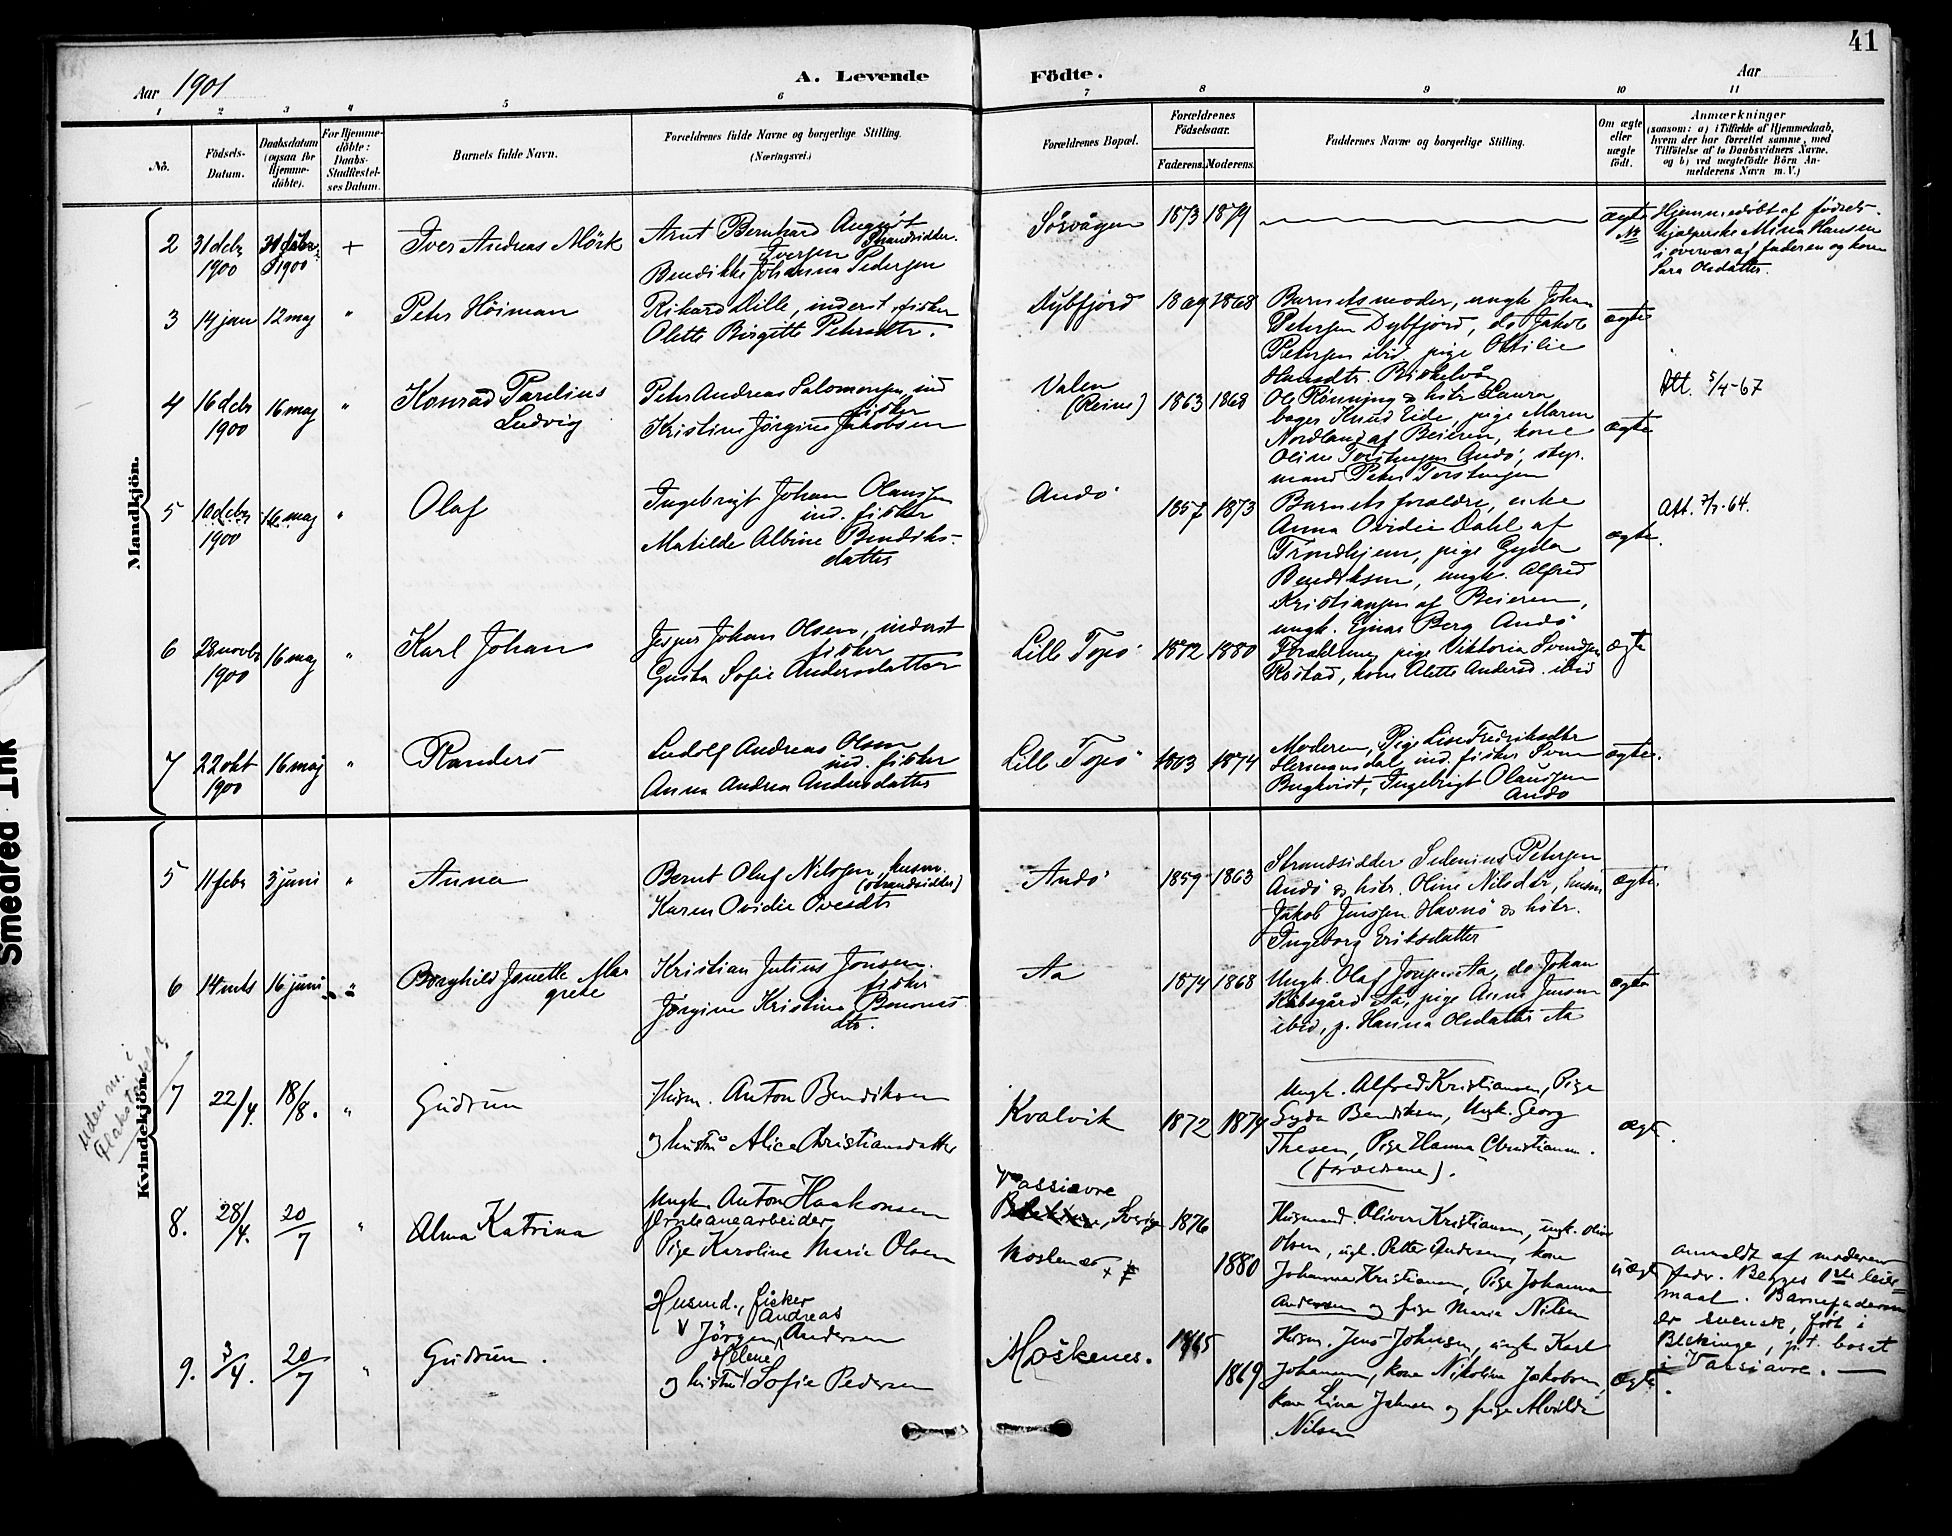 41
Aar 1901
A. Levende Födte.
Aar
1 2 3 4 5 6 7 8 9 10 11
No.
Födsels-Datum.
Daabsdatum (ogsaa for Hjemme-döbte).
For Hjemme-döbte: Daabs-Stadfæstel-ses Datum.
Barnets fulde Navn.
Forældrenes fulde Navne og borgerlige Stilling.
(Næringsvei.)
Forældrenes Bopæl.
Forældrenes Födselsaar.
Faderens. Moderens.
Faddernes Navne og borgerlige Stilling.
Om ægte eller uægte födt.
Anmærkninger
(saasom: a) i Tilfælde af Hjemmedaab,
hvem der har forrettet samme, med
Tilföielse af to Daabsvidners Navne,
og b) ved uegtefödte Börn An-
melderens Navn m. V.)
Mandkjön.
2 31 debr 1900 31 debr 1900 + Iver Andreas Mörk
Arnt Bernhard August
Strandsidder.
Iversen
Bendikke Johanna Pedersen
Sörvågen 1873 1879 ægte
Hjemmedöbt af födsels-
hjælperske Mina Hansen
i overvær af faderen og kone
Sara Olsdatter.
3 14 jan 12 maj " Peter Höiman
Rikard Lille, inderst, fisker
Olette Birgitte Petersdtr.
Dybfjord 1869 1868
Barnets moder, ungk. Johan
Petersen Dybfjord, do Jakob
Petersen ibid. pige Otilie
Hansdtr.
ægte
4 16 debr 1900 16 maj " Konrad Parelius
Ludvig
Peter Andreas Salomonsen, ind
fisker
Kristine Jörgine Jakobsen
Valen
(Reine) 1863 1868
Ole Rönning & hstr Laura
bager Knud Eide, pige Maren
Nordland af Beieren, kone
Oline Torstensen Andö, styr-
mand Peter Torstensen
ægte
Att. 5/4-67
5 10 debr 1900 16 maj " Olaf
Ingebrigt Johan Olaussen
ind. fisker
Matilde Albine Bendiks-
datter
Andö 1857 1873
Barnets forældre, enke
Anna Ovidie Dahl af
Trondhjem, pige Gyda
Bendiksen, ungk. Alfred
Kristiansen af Beieren,
ungk. Ejnar Berg Andö
ægte.
Att. 7/7-64.
6 28 novbr 1900 16 maj " Karl Johan
Jesper Johan Olsen, inderst
fisker
Gusta Sofie Andersdatter
Lille Topö 1872 1880
Forældrene, pige Viktoria Svendsen
Rostad, kone Olette Andersd. ibid
ægte
7 22 okt 1900 16 maj " Randers
Ludolf Andreas Olsen
ind. fisker
Anna Andrea Andersdatter
Lille Topö 1874
Moderen, Pige Lise Fredriksdtr
Hermansdal, ind. fisker Sven
Bugkvist, Ingebrigt Olaussen
Andö
ægte.
Kvindekjön.
5 11 febr 3 juni " Anna
Bernt Oluf Nilssen, husm.
(strandsidder)
Karen Ovidie Ovesdtr
Andö 1859 1863
Strandsidder Selenius Petersen
Andö & hstr. Oline Nilsdtr, husm
Jakob Jenssen Havnö & hstr.
Ingeborg Eriksdatter
ægte.
6 14 mts 16 juni " Borghild Janette Mar
grete
Kristian Julius Jonsen.
fisker
Jörgine Kristine Benones
dtr.
Aa 1874 1868
Ungk. Olaf Jonsen Aa, do Johan
Kibsgård Aa, pige Anna Jensen
ibid, p. Hanna Olsdatter Aa
ægte
7 22/4. 18/8. " Gudrun
Husm. Anton Bendiksen
og hustru Alice Christiansdatter
Kvalvik 1872 1874
Ungk. Alfred Kristiansen, Pige
Gyda Bendiksen, Ungk. Georg
Thesen, Pige Hanna Christiansen.
(forældrene).
ægt.
8. 28/4. 20/7 " Alma Katrina
Ungk. Anton Haakonsen
Jernbanearbeider
Pige Karoline Marie Olsen
Vassiavre
Sverige 1876
Moskenes
1880
Husmand. Oliver Kristiansen, ungk. Olin
Olsen, ugk. Petter Andersen, kone
Johanna Kristiansen, Pige Johanna
Andersen og pige Marie Nilsen
uægt
Anmeldt af moderens
fader. Begges 1ste leier-
maal. Barnefaderen
er svensk, född i
Blekinge, p.t. bosat
i Vassiavre.
9. 3/4. 20/7 " Gudrun.
Husmd., fisker
Andreas
Jörgen Andersen
Helene
og hustru Sofie Pedersen
Moskenes. 1865
1869
Husm. Jens Johnsen, ungk. Karl
Johansen, kone Nikoline Jakobsen,
kone Lina Johnsen og pige Alvilde
Nilsen
ægt.
Smedred Ink